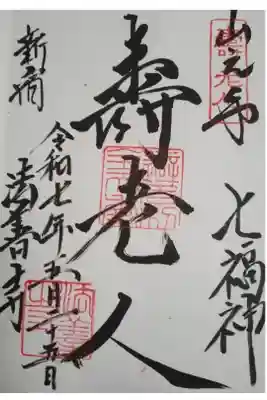 山之手
七福神
壽老人
令和七年五月二十五日
新宿
法善寺